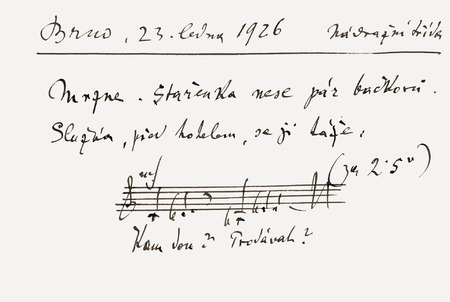 Brno, 23. ledna 1926 Nádražní třída
Mrzne. Stařenka nese pár bačkorů.
Služka, před hotelem, se jí táže,
(za 2·5")
mf
Kam jdou? Prodávat?